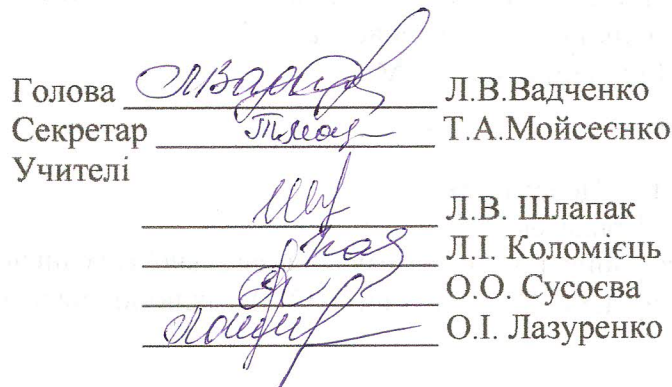 Голова Л.В.Вадченко
Секретар Т.А.Мойсеєнко
Учителі
Л.В. Шлапак
Л.І. Коломієць
О.О. Сусоєва
О.І. Лазуренко